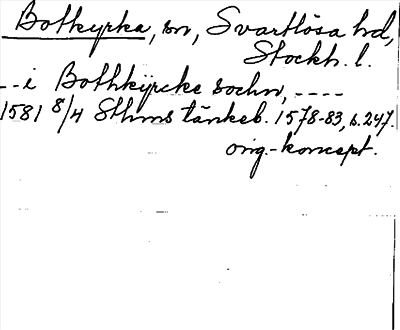 Botkyrka, sn, Svartlösa hd,
Stockh. l.
-- i Bothkÿrcke sochn, ----
1581 8/4 Sthms tänkeb. 1578-83, s. 247.
orig.-koncept.